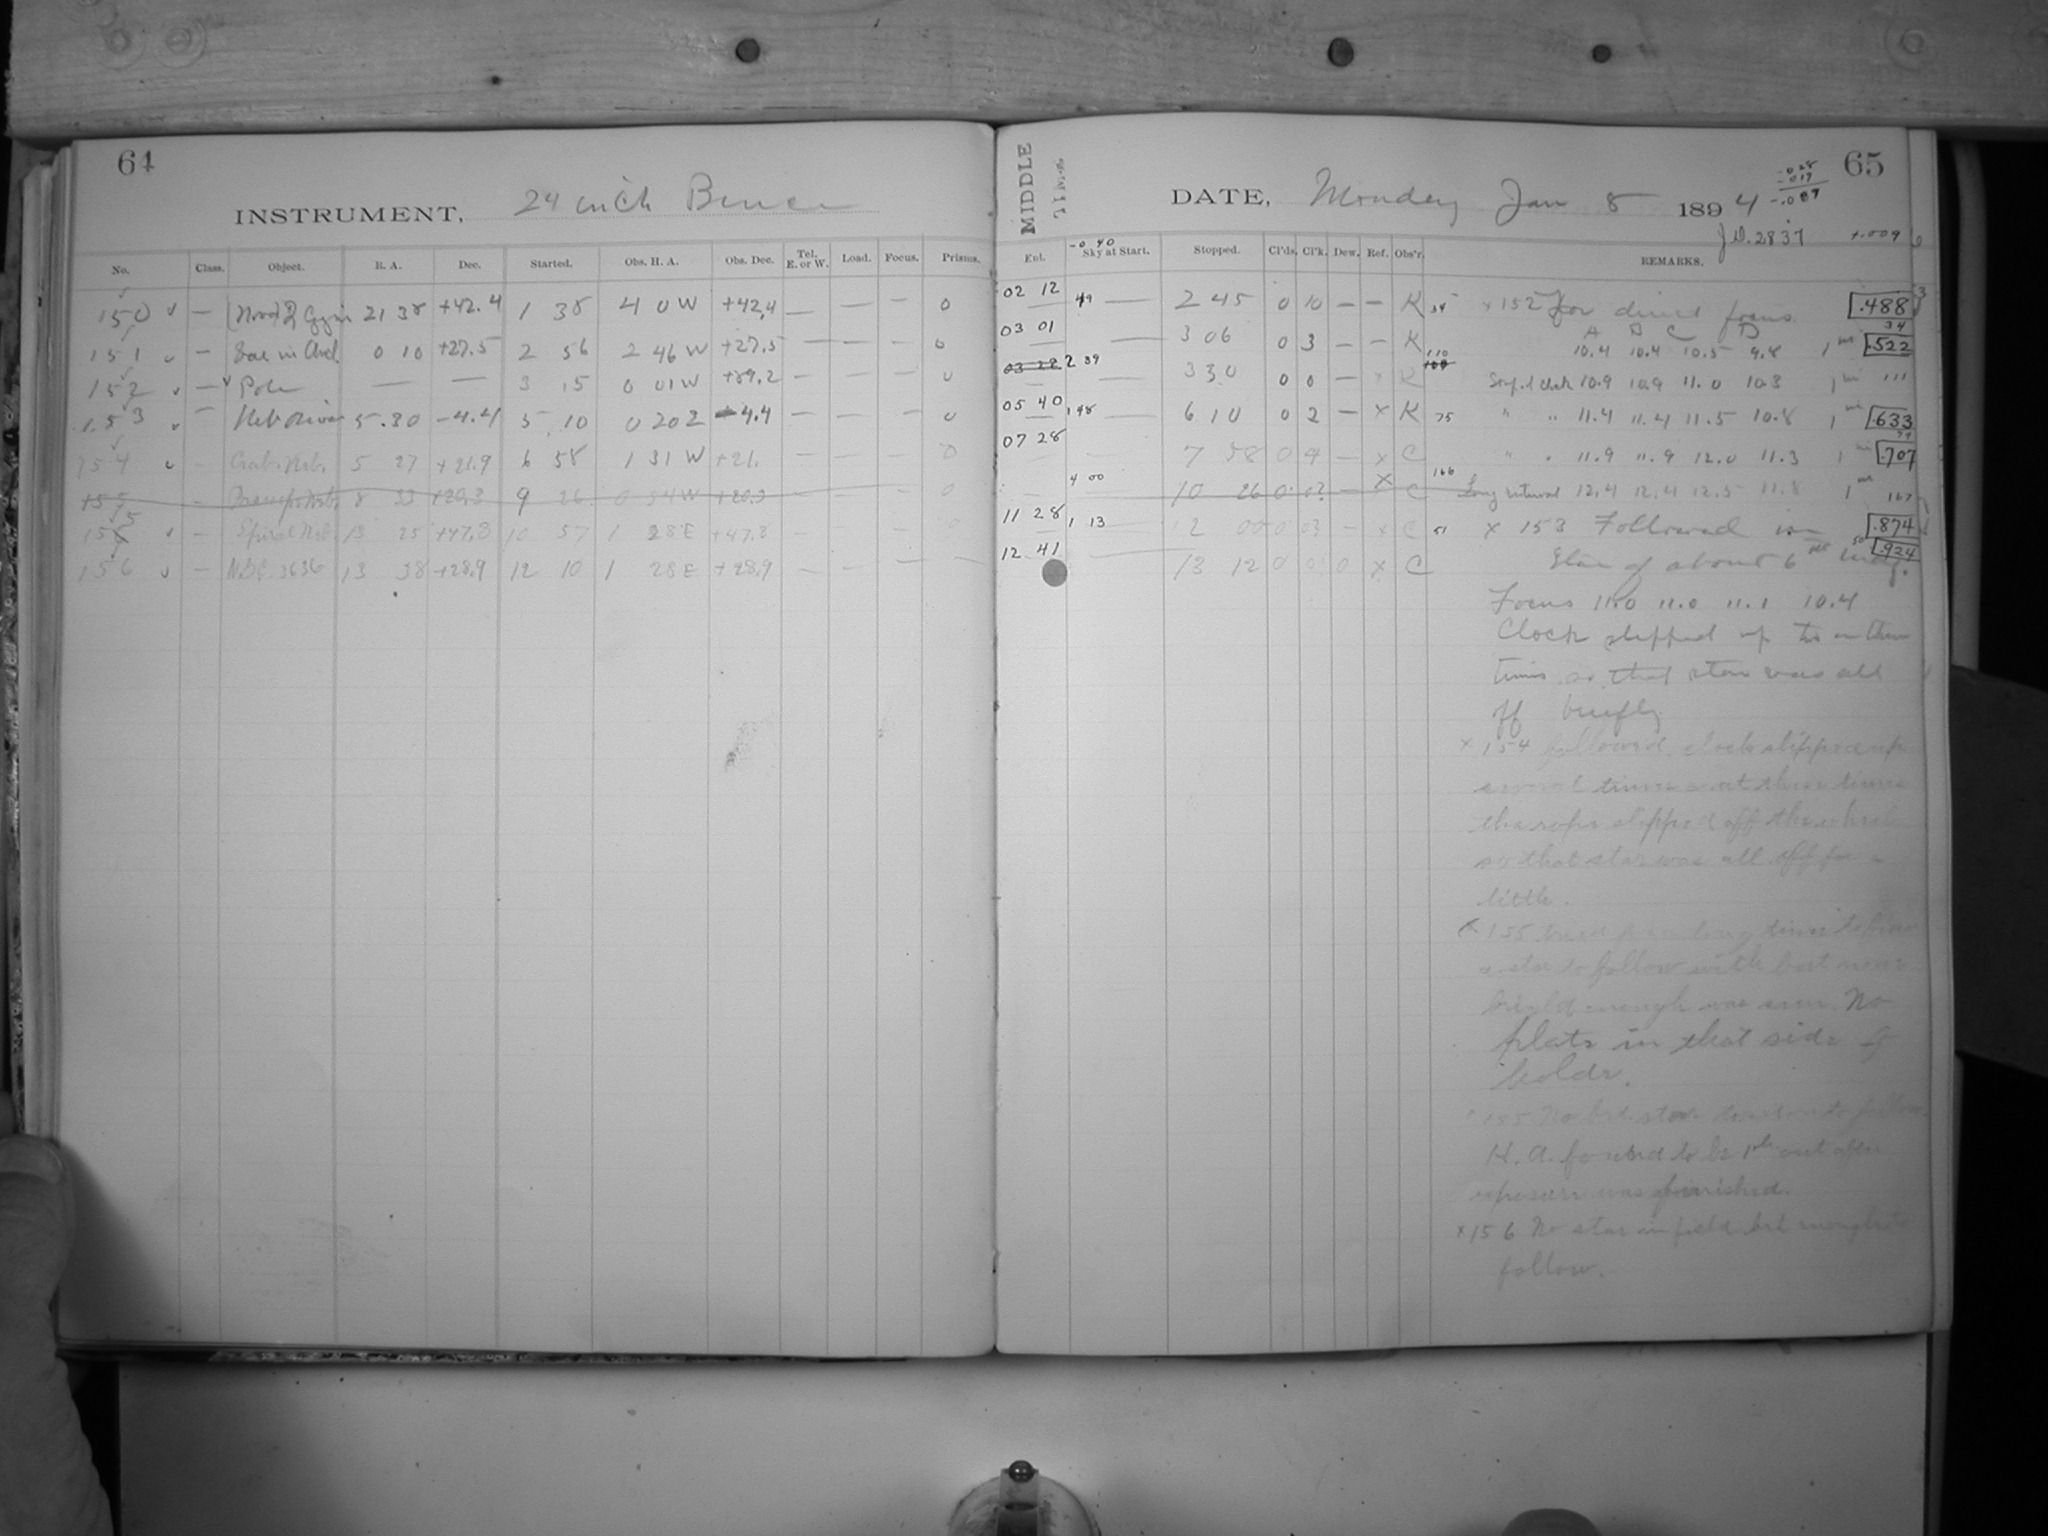 64
INSTRUMENT, 24 inch Bruce
No. Class. Object. R. A. Dec. Started. Obs. H. A. Obs. Dec. Tel. E. or W. Load. Focus. Prisms.
150 — 21 38 +42.4 1 38 4 0 W +42.4 — — — 0
151 — 0 10 +27.5 2 56 2 46 W +27.5 — — — 0
152 — Pole — — 3 15 0 01 W +89.2 — — — 0
153 — 5.30 -4.4 5 10 0 20 -4.4 — — — 0
154 — Crab. Neb. 5 27 +21.9 6 58 1 31 W +21. 0
155 — 8 33 +20.3 9 26 0 54 W +20.3 — — 0
155 — Spiral Neb 13 25 +47.8 10 57 1 28 E +47.8 — 0
156 — 13 38 +28.9 12 10 1 28 E +28.9 — — — —
MIDDLE
DATE, Monday Jan 8 1894
-.028
-.017
65
J.D. 2837 +.009
Ent. -0 40 Sky at Start. Stopped. Cl'ds. Cl'k. Dew. Ref. Obs'r. REMARKS.
02 12 49 — 2 45 0 10 — — K 34 × 152 For direct focus .488
03 01 — 3 06 0 3 — — K A B C D 34
10.4 10.4 10.5 9.8 1 m .522
03 22 2 39 — 3 30 0 0 — × K 110 10.9 10.9 11.0 10.3 1 m 111
05 40 1 48 — 6 10 0 2 — × K 75 " " 11.4 11.4 11.5 10.8 1 m .633
07 28 — 7 58 0 4 — × C " " 11.9 11.9 12.0 11.3 1 m .707
4 00 10 26 0 — × C 166 Long interval 12.4 12.4 12.5 11.8 1 m 167
11 28 1 13 12 00 0 — × C 51 × 153 Followed on .874
12 41 — 13 12 0 0 0 × C Star of about 6 mag. 50 .924
Focus 11.0 11.0 11.1 10.4
Clock slipped up two or three
times so that star was all
off briefly
× 154 followed. clock slipped up
several times at three times
the rope slipped off the wheel
so that star was all off for a
little.
× 155 tried for a long time to find
a star to follow with but none
bright enough was seen. No
plate in that side of
holder.
155 No to follow
H. A. found to be 1h out after
exposure was finished.
× 156 No star in field brt enough to
follow.